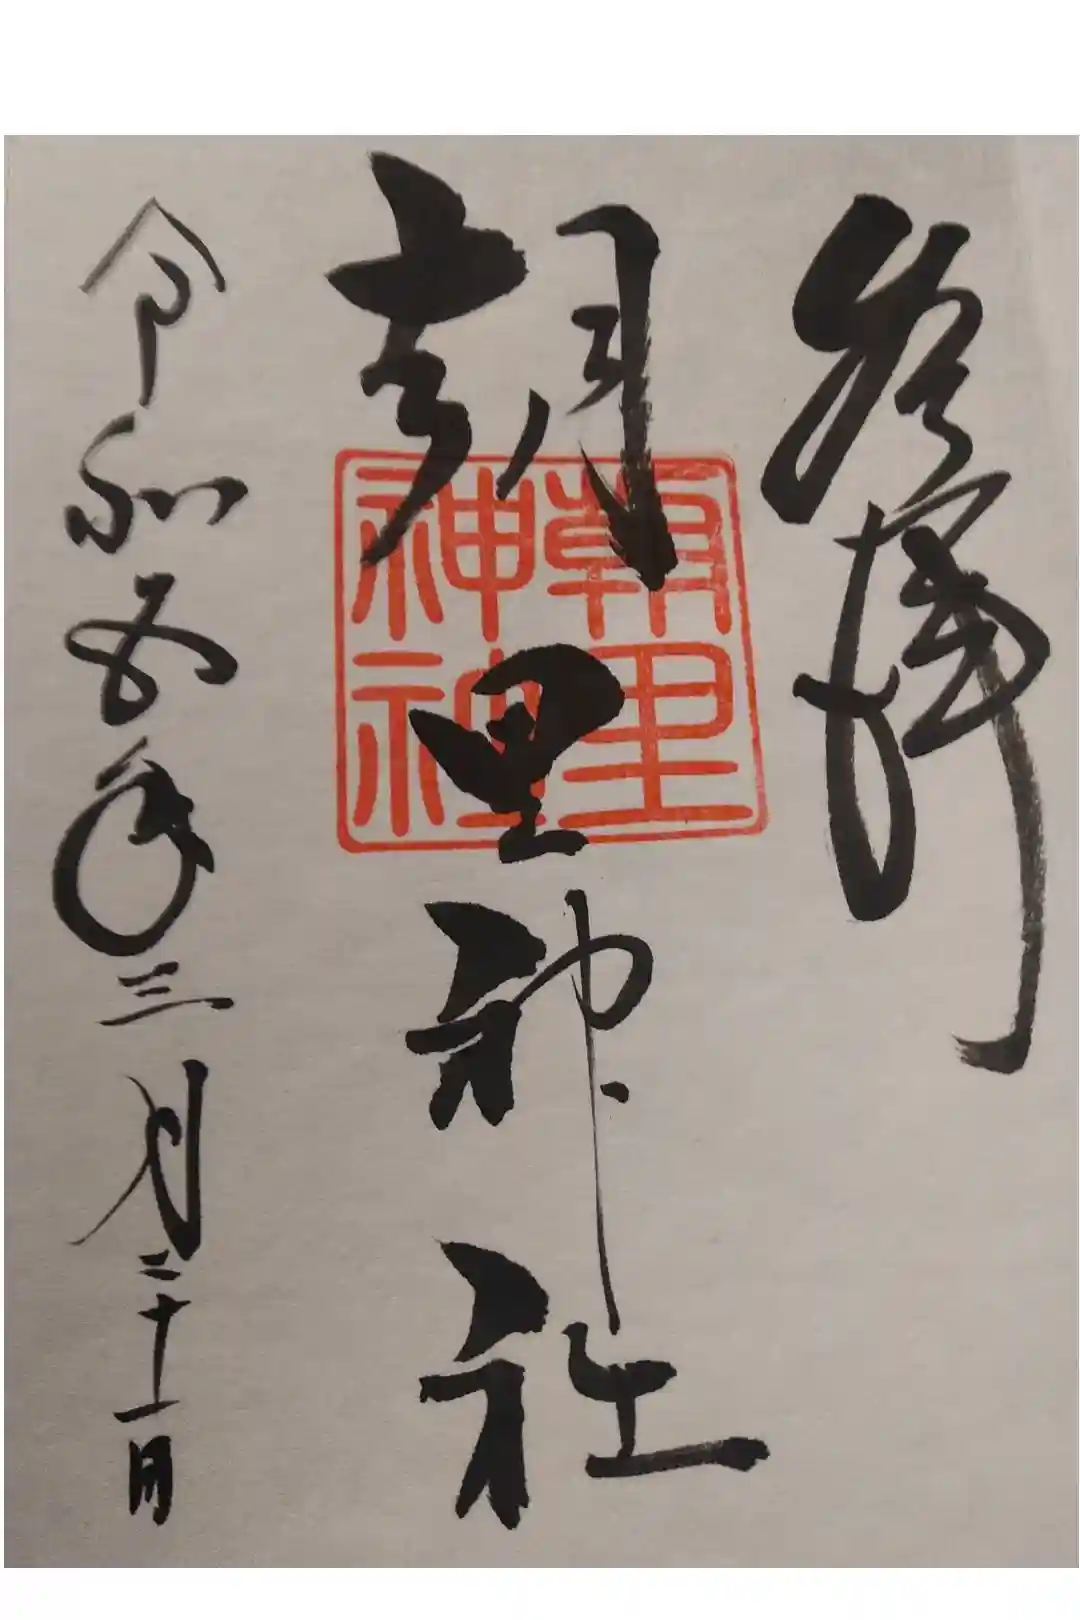 奉拝
朝里神社
朝里
神社
令和五年三月二十一日